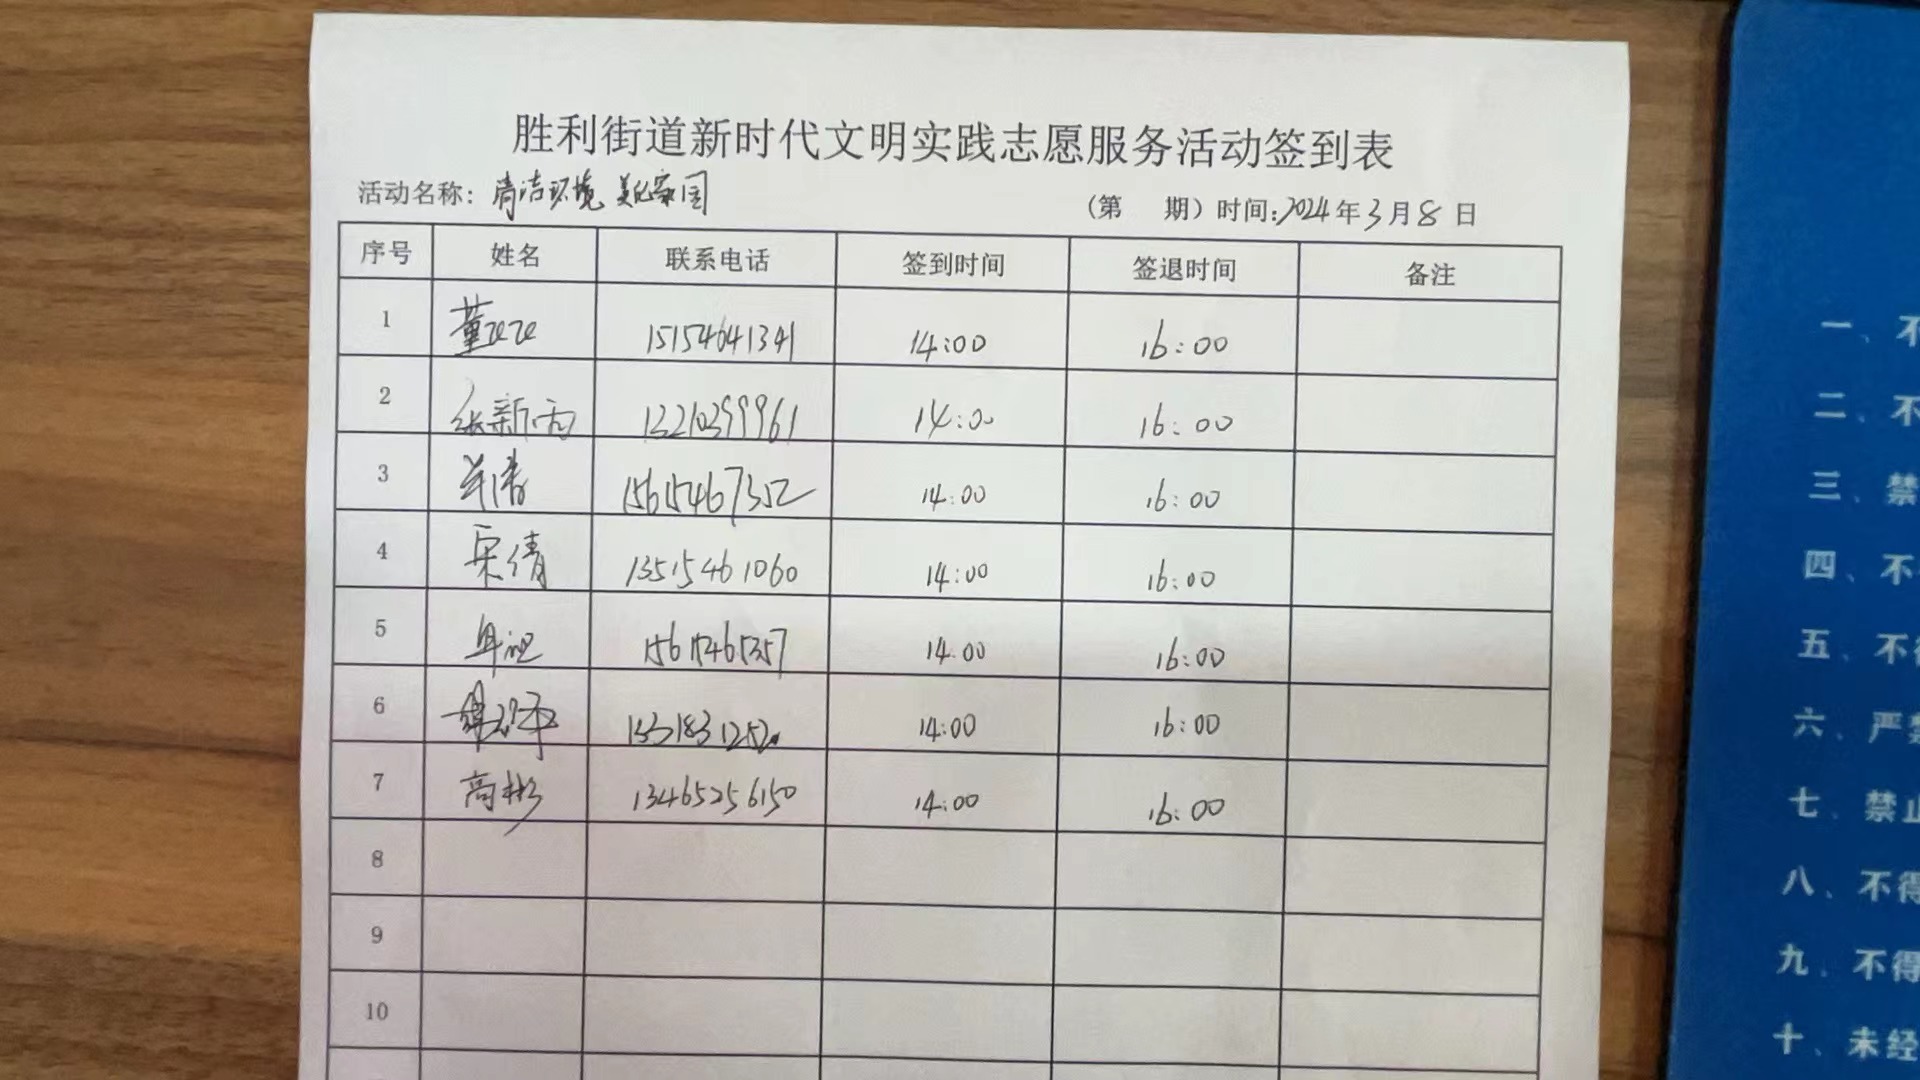 胜利街道新时代文明实践志愿服务活动签到表
活动名称：清洁环境 美化家园 （第 期）时间：2024年3月8日
序号 姓名 联系电话 签到时间 签退时间 备注
1 董 15154641341 14:00 16:00
2 张新雨 13210399961 14:00 16:00
3 15615467352 14:00 16:00
4 宋倩 13515461060 14:00 16:00
5 14:00 16:00
6 14:00 16:00
7 高彬 13465256150 14:00 16:00
8
9
10
一、不
二、不
三、禁
四、不
五、不得
六、严禁
七、禁止
八、不得
九、不得
十、未经